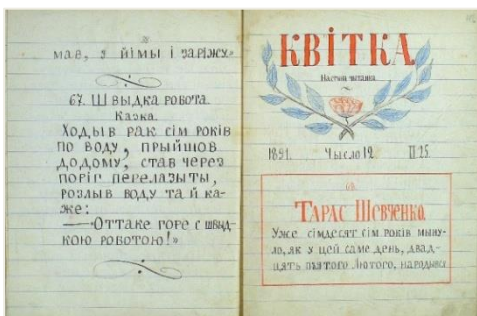 мав, з йімы і заріжу.»
67. Швыдка робота.
Казка.
Ходыв рак сім років
по воду, прыйшов
додому, став через
поріг перелазыты,
розлыв воду та й ка-
же:
— Оттаке горе с швыд-
кою роботою!»
КВІТКА
1891. Чысло 12. II.25.
Тарас Шевченко.
Уже сімдесят сім років мыну-
ло, як у цей саме день, двад-
цять пъятого Лютого, народывся